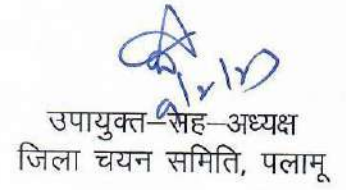 उपायुक्त–सह–अध्यक्ष
जिला चयन समिति, पलामू